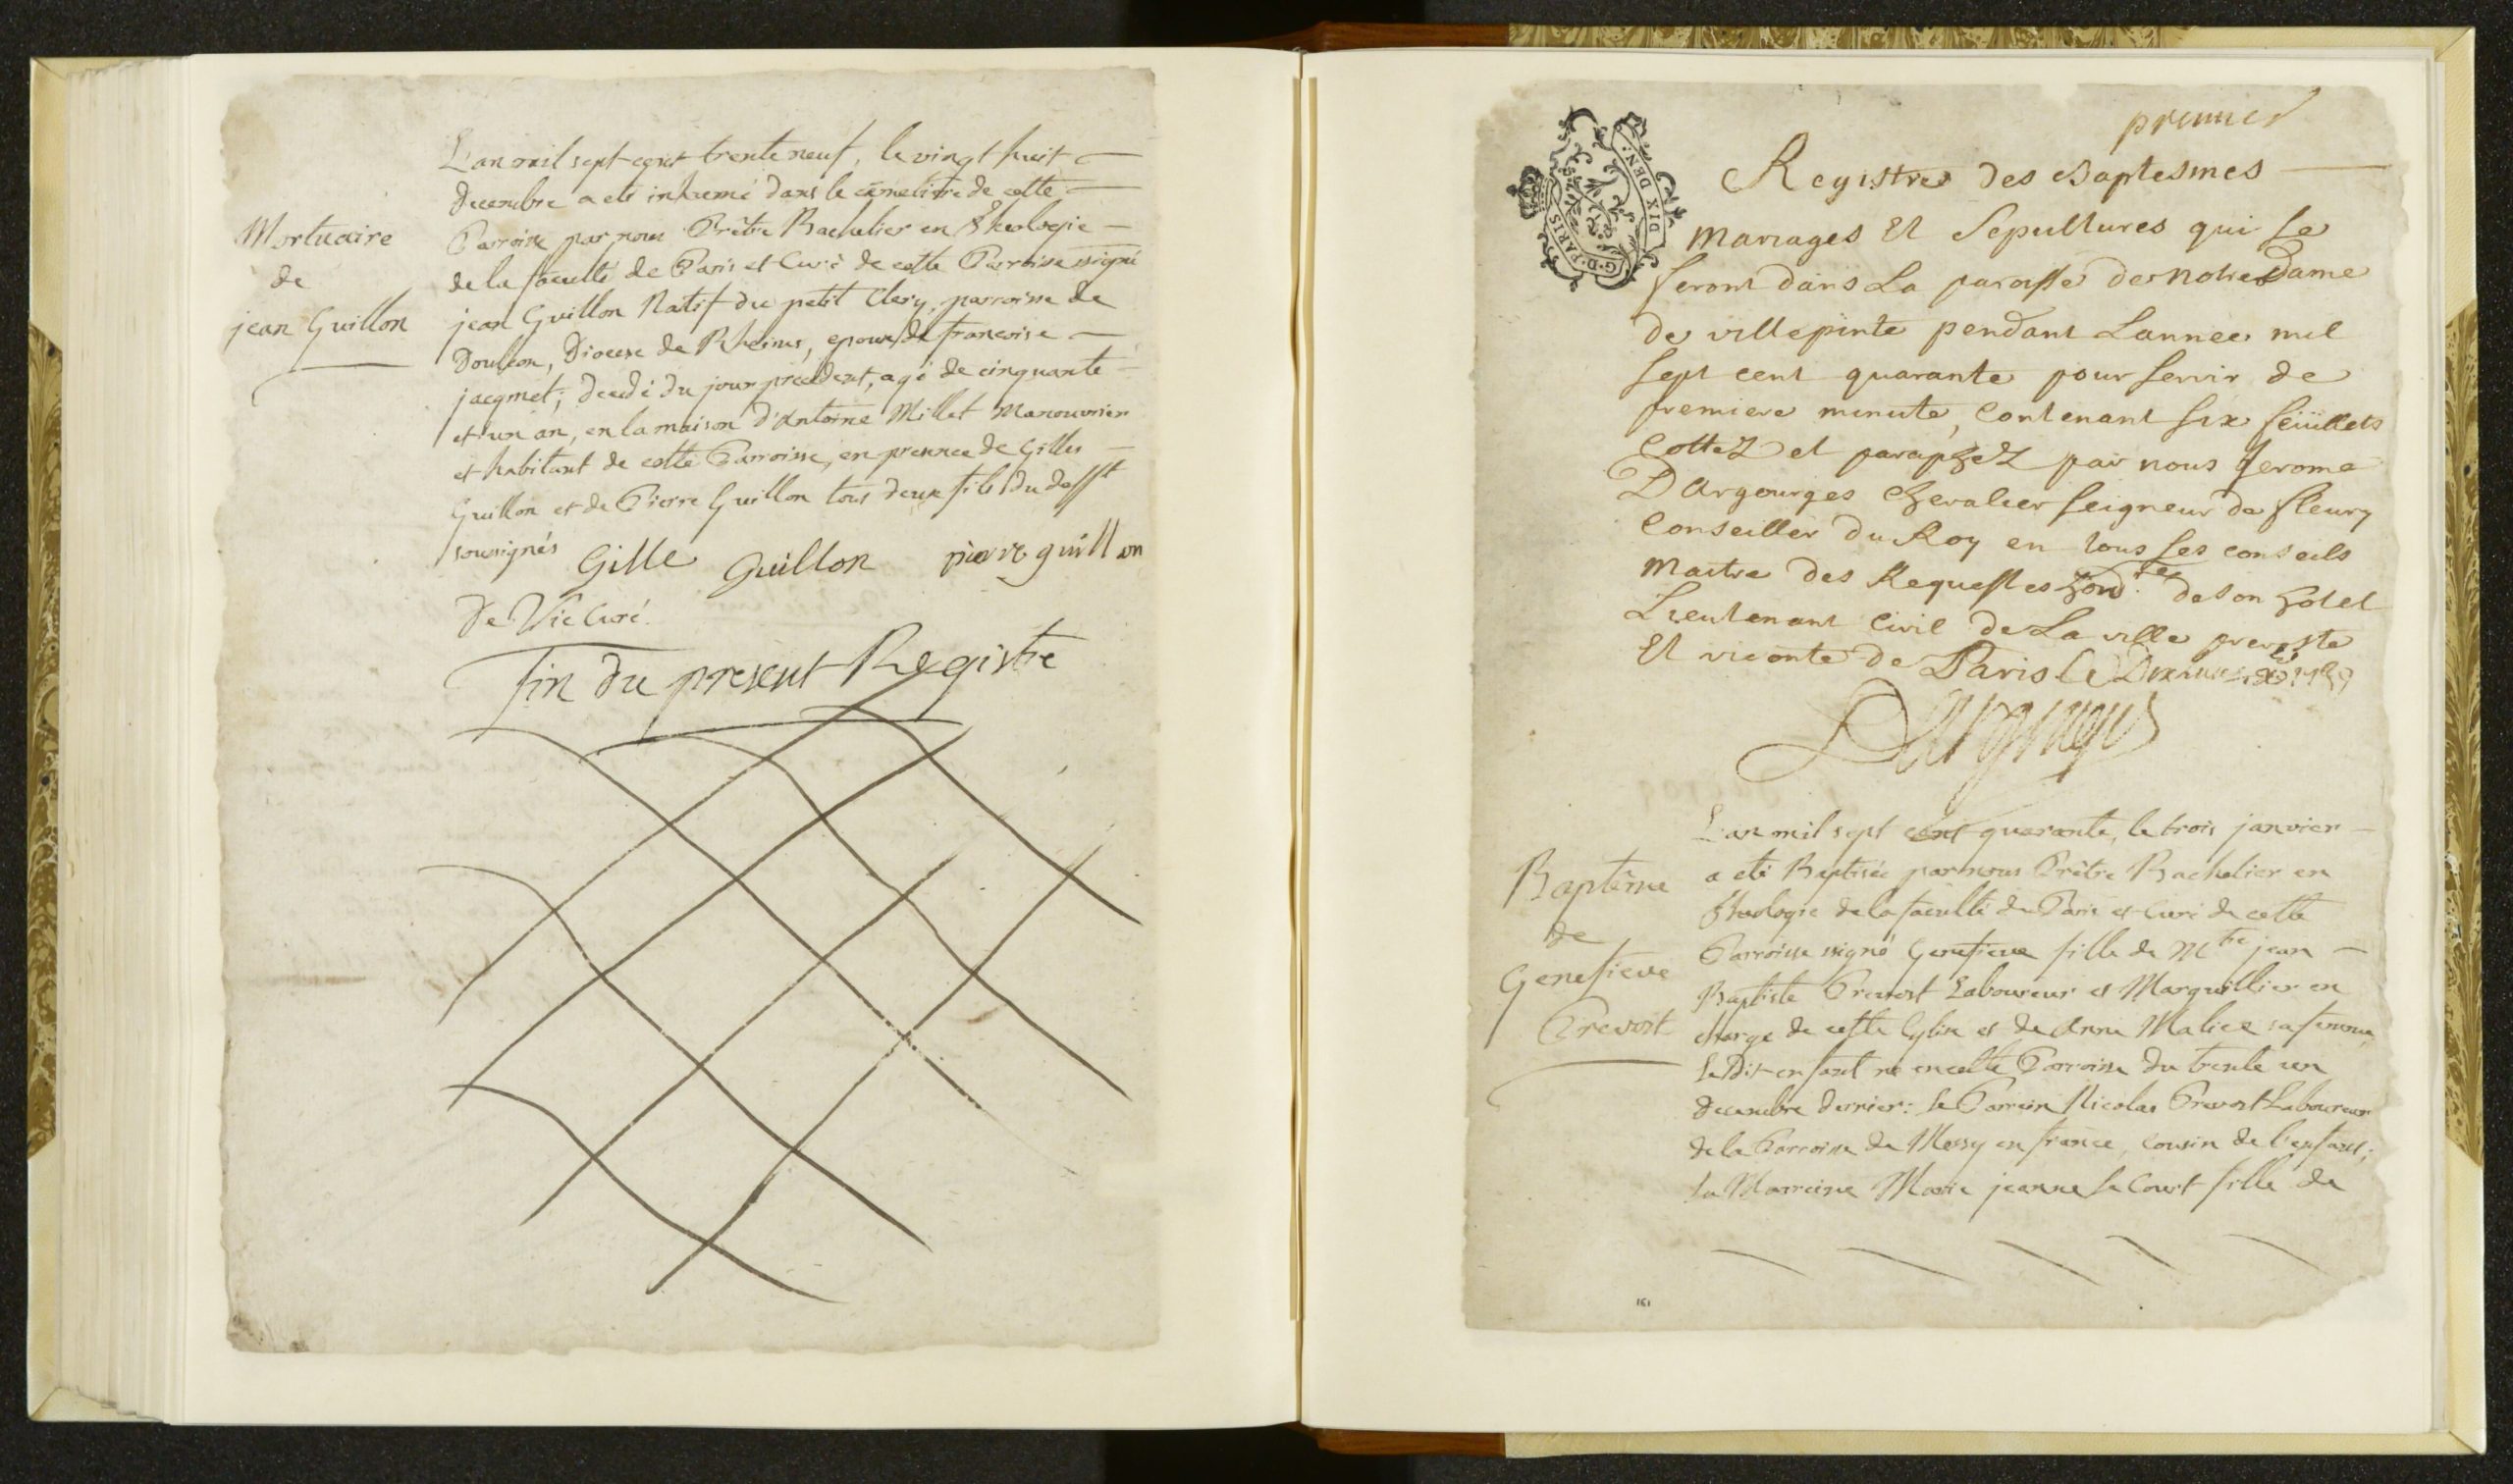 L'an mil sept cent trente neuf, le vingt huit
Decembre a eté inhumé dans le cimetierre de cette
Parroisse par nous Prêtre Bachelier en Theologie
de la faculté de Paris et Curé de cette Parroisse ssigné
jean Guillon Natif du petit Clery, parroisse de
Doulcon, Diocese de Rheims, epoux de francoise
jacqmet; decedé du jour precedent, agé de cinquante
et un an, en la maison d'Antoine Millet Manouvrier
et habitant de cette Parroisse, en presence de Gilles
Guillon et de Pierre Guillon tous deux fils du defft
soussignés Gille Guillon piere guillon
De Vic Curé.
Mortuaire
de
jean Guillon
fin du present Registre
premier
G.D. PARIS DIX DEN.
Registre des Baptesmes
mariages Et Sepultures qui se
feront dans La paroisse de Notre Dame
de villepinte pendant Lannée mil
sept cent quarante pour servir de
premiere minute, Contenant six feüillets
Cottez et paraphez par nous Jerome
D'Argouges chevalier seigneur de fleury
Conseiller du Roy en tous ses conseils
maitre des Requestes hon.re de son hotel
Lieutenant Civil de La ville prevosté
Et viconté de Paris Le
Dargouges
L'an mil sept cent quarante, le trois janvier
a eté Baptisée par nous Prêtre Bachelier en
theologie de la faculté de Paris et Curé de cette
Parroisse ssigné Genefieve fille de Mtre jean
Baptiste Prevost Laboureur et Marguillier en
charge de cette Eglise et de Anne Malice sa femme,
le Dit enfant né en cette Parroisse du trente un
Decembre dernier: le Parrein Nicolas Prevost Laboureur
de la Parroisse de Messy en france, cousin de l'enfant;
la Marreine Marie jeanne le Court fille de
Baptême
de
Genefieve
Prevost
161